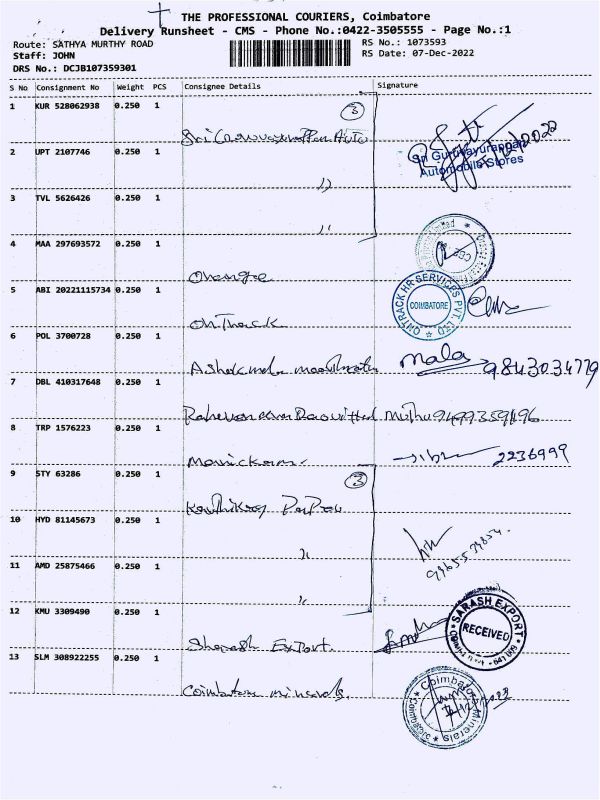 THE PROFESSIONAL COURIERS, Coimbatore
Delivery Runsheet - CMS - Phone No.:0422-3505555 - Page No.:1
Route: SATHYA MURTHY ROAD
RS No.: 1073593
Staff: JOHN
RS Date: 07-Dec-2022
DRS No.: DCJB107359301
S No Consignment No Weight PCS Consignee Details Signature
1 KUR 528062938 0.250 1 3
Sri Guruvayurappan Auto
2 UPT 2107746 0.250 1
Sri Guruvayurappan
Automobile Stores
"
3 TVL 5626426 0.250 1
"
4 MAA 297693572 0.250 1
Orange
5 ABI 20221115734 0.250 1
ONTRACK HR SERVICES PVT. LTD
COIMBATORE
OnTrack
6 POL 3700728 0.250 1
Mala 9843034779
7 DBL 410317648 0.250 1
8 TRP 1576223 0.250 1
2236999
Manickam
9 STY 63286 0.250 1 3
10 HYD 81145673 0.250 1
"
11 AMD 25875466 0.250 1
"
12 KMU 3309490 0.250 1
SARASH EXPORT
RECEIVED
Export.
13 SLM 308922255 0.250 1
Coimbatore minerals.
Coimbatore Minerals